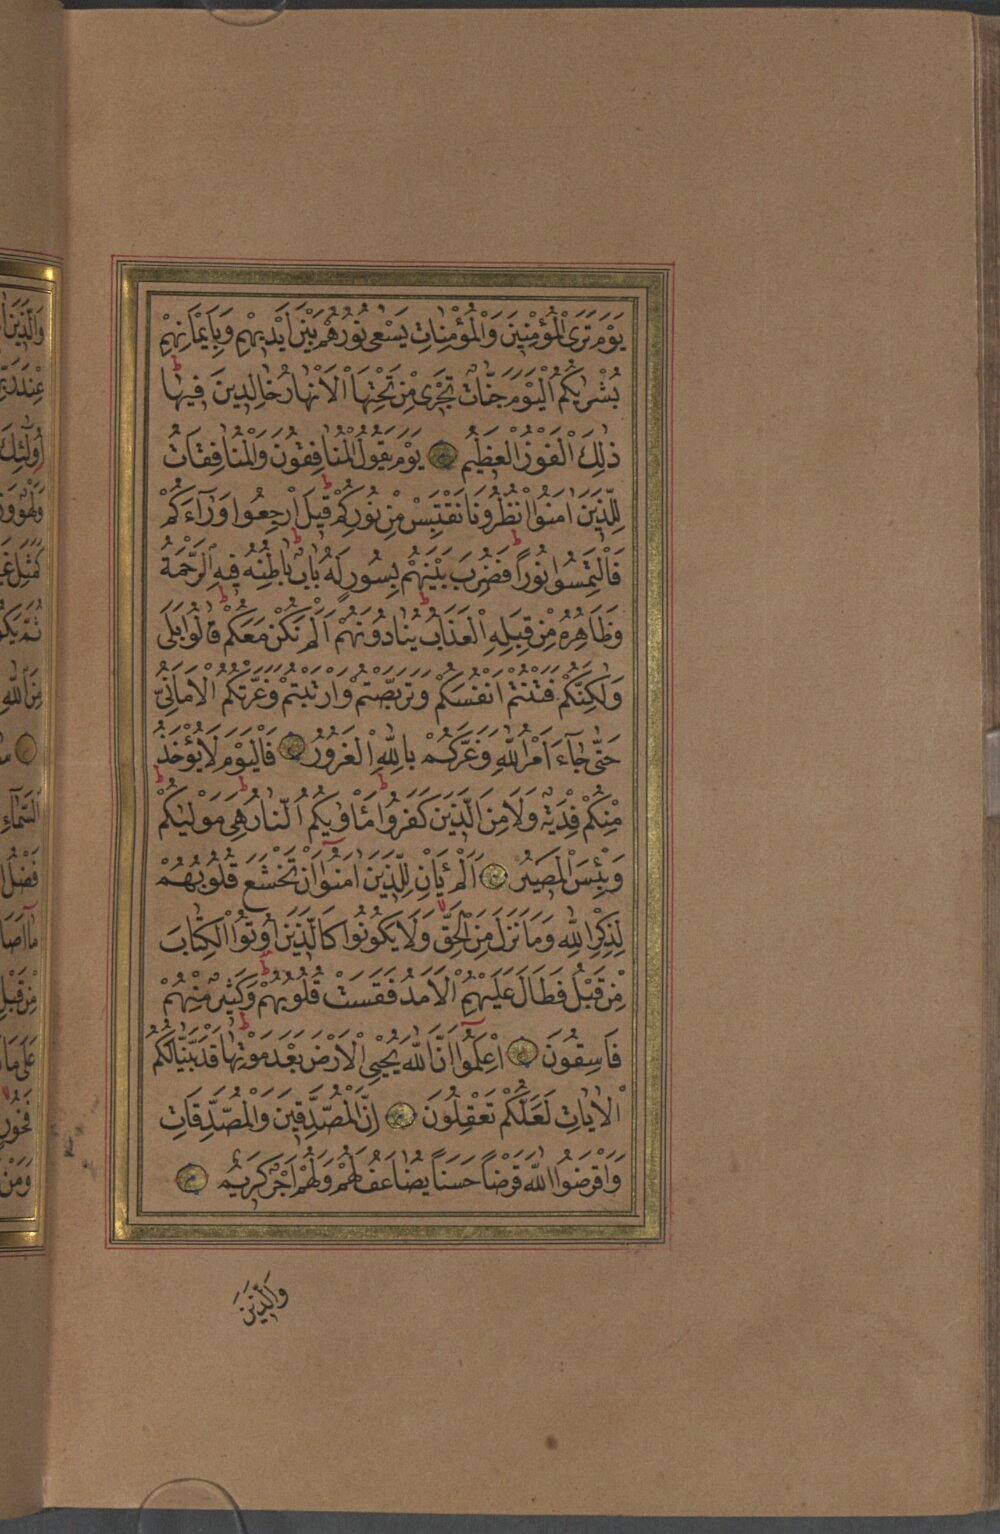 يَوْمَ تَرَى الْمُؤْمِنِينَ وَالْمُؤْمِنَاتِ يَسْعٰى نُورُهُمْ بَيْنَ اَيْدِيهِمْ وَبِاَيْمَانِهِمْ
بُشْرٰيكُمُ الْيَوْمَ جَنَّاتٌ تَجْرِى مِنْ تَحْتِهَا الْاَنْهَارُ خَالِدِينَ فِيهَا ط
ذٰلِكَ الْفَوْزُ الْعَظِيمُ يَوْمَ يَقُولُ الْمُنَافِقُونَ وَالْمُنَافِقَاتُ
لِلَّذِينَ اٰمَنُوا انْظُرُونَا نَقْتَبِسْ مِنْ نُورِكُمْ ط قِيلَ ارْجِعُوا وَرَآءَكُمْ
فَالْتَمِسُوا نُورًا ط فَضُرِبَ بَيْنَهُمْ بِسُورٍ لَهُ بَابٌ ط بَاطِنُهُ فِيهِ الرَّحْمَةُ
وَظَاهِرُهُ مِنْ قِبَلِهِ الْعَذَابُ ط يُنَادُونَهُمْ اَلَمْ نَكُنْ مَعَكُمْ ط قَالُوا بَلٰى
وَلٰكِنَّكُمْ فَتَنْتُمْ اَنْفُسَكُمْ وَتَرَبَّصْتُمْ وَارْتَبْتُمْ وَغَرَّتْكُمُ الْاَمَانِىُّ
حَتّٰى جَآءَ اَمْرُ اللّٰهِ وَغَرَّكُمْ بِاللّٰهِ الْغَرُورُ فَالْيَوْمَ لَا يُؤْخَذُ
مِنْكُمْ فِدْيَةٌ وَلَا مِنَ الَّذِينَ كَفَرُوا ط مَاْوٰيكُمُ النَّارُ ط هِىَ مَوْلٰيكُمْ ط
وَبِئْسَ الْمَصِيرُ اَلَمْ يَاْنِ لِلَّذِينَ اٰمَنُوا اَنْ تَخْشَعَ قُلُوبُهُمْ
لِذِكْرِ اللّٰهِ وَمَا نَزَلَ مِنَ الْحَقِّ لا وَلَا يَكُونُوا كَالَّذِينَ اُوتُوا الْكِتَابَ
مِنْ قَبْلُ فَطَالَ عَلَيْهِمُ الْاَمَدُ فَقَسَتْ قُلُوبُهُمْ ط وَكَثِيرٌ مِنْهُمْ
فَاسِقُونَ اِعْلَمُوا اَنَّ اللّٰهَ يُحْيِى الْاَرْضَ بَعْدَ مَوْتِهَا ط قَدْ بَيَّنَّا لَكُمُ
الْاٰيَاتِ لَعَلَّكُمْ تَعْقِلُونَ اِنَّ الْمُصَّدِّقِينَ وَالْمُصَّدِّقَاتِ
وَاَقْرَضُوا اللّٰهَ قَرْضًا حَسَنًا يُضَاعَفُ لَهُمْ وَلَهُمْ اَجْرٌ كَرِيمٌ
وَالَّذِينَ